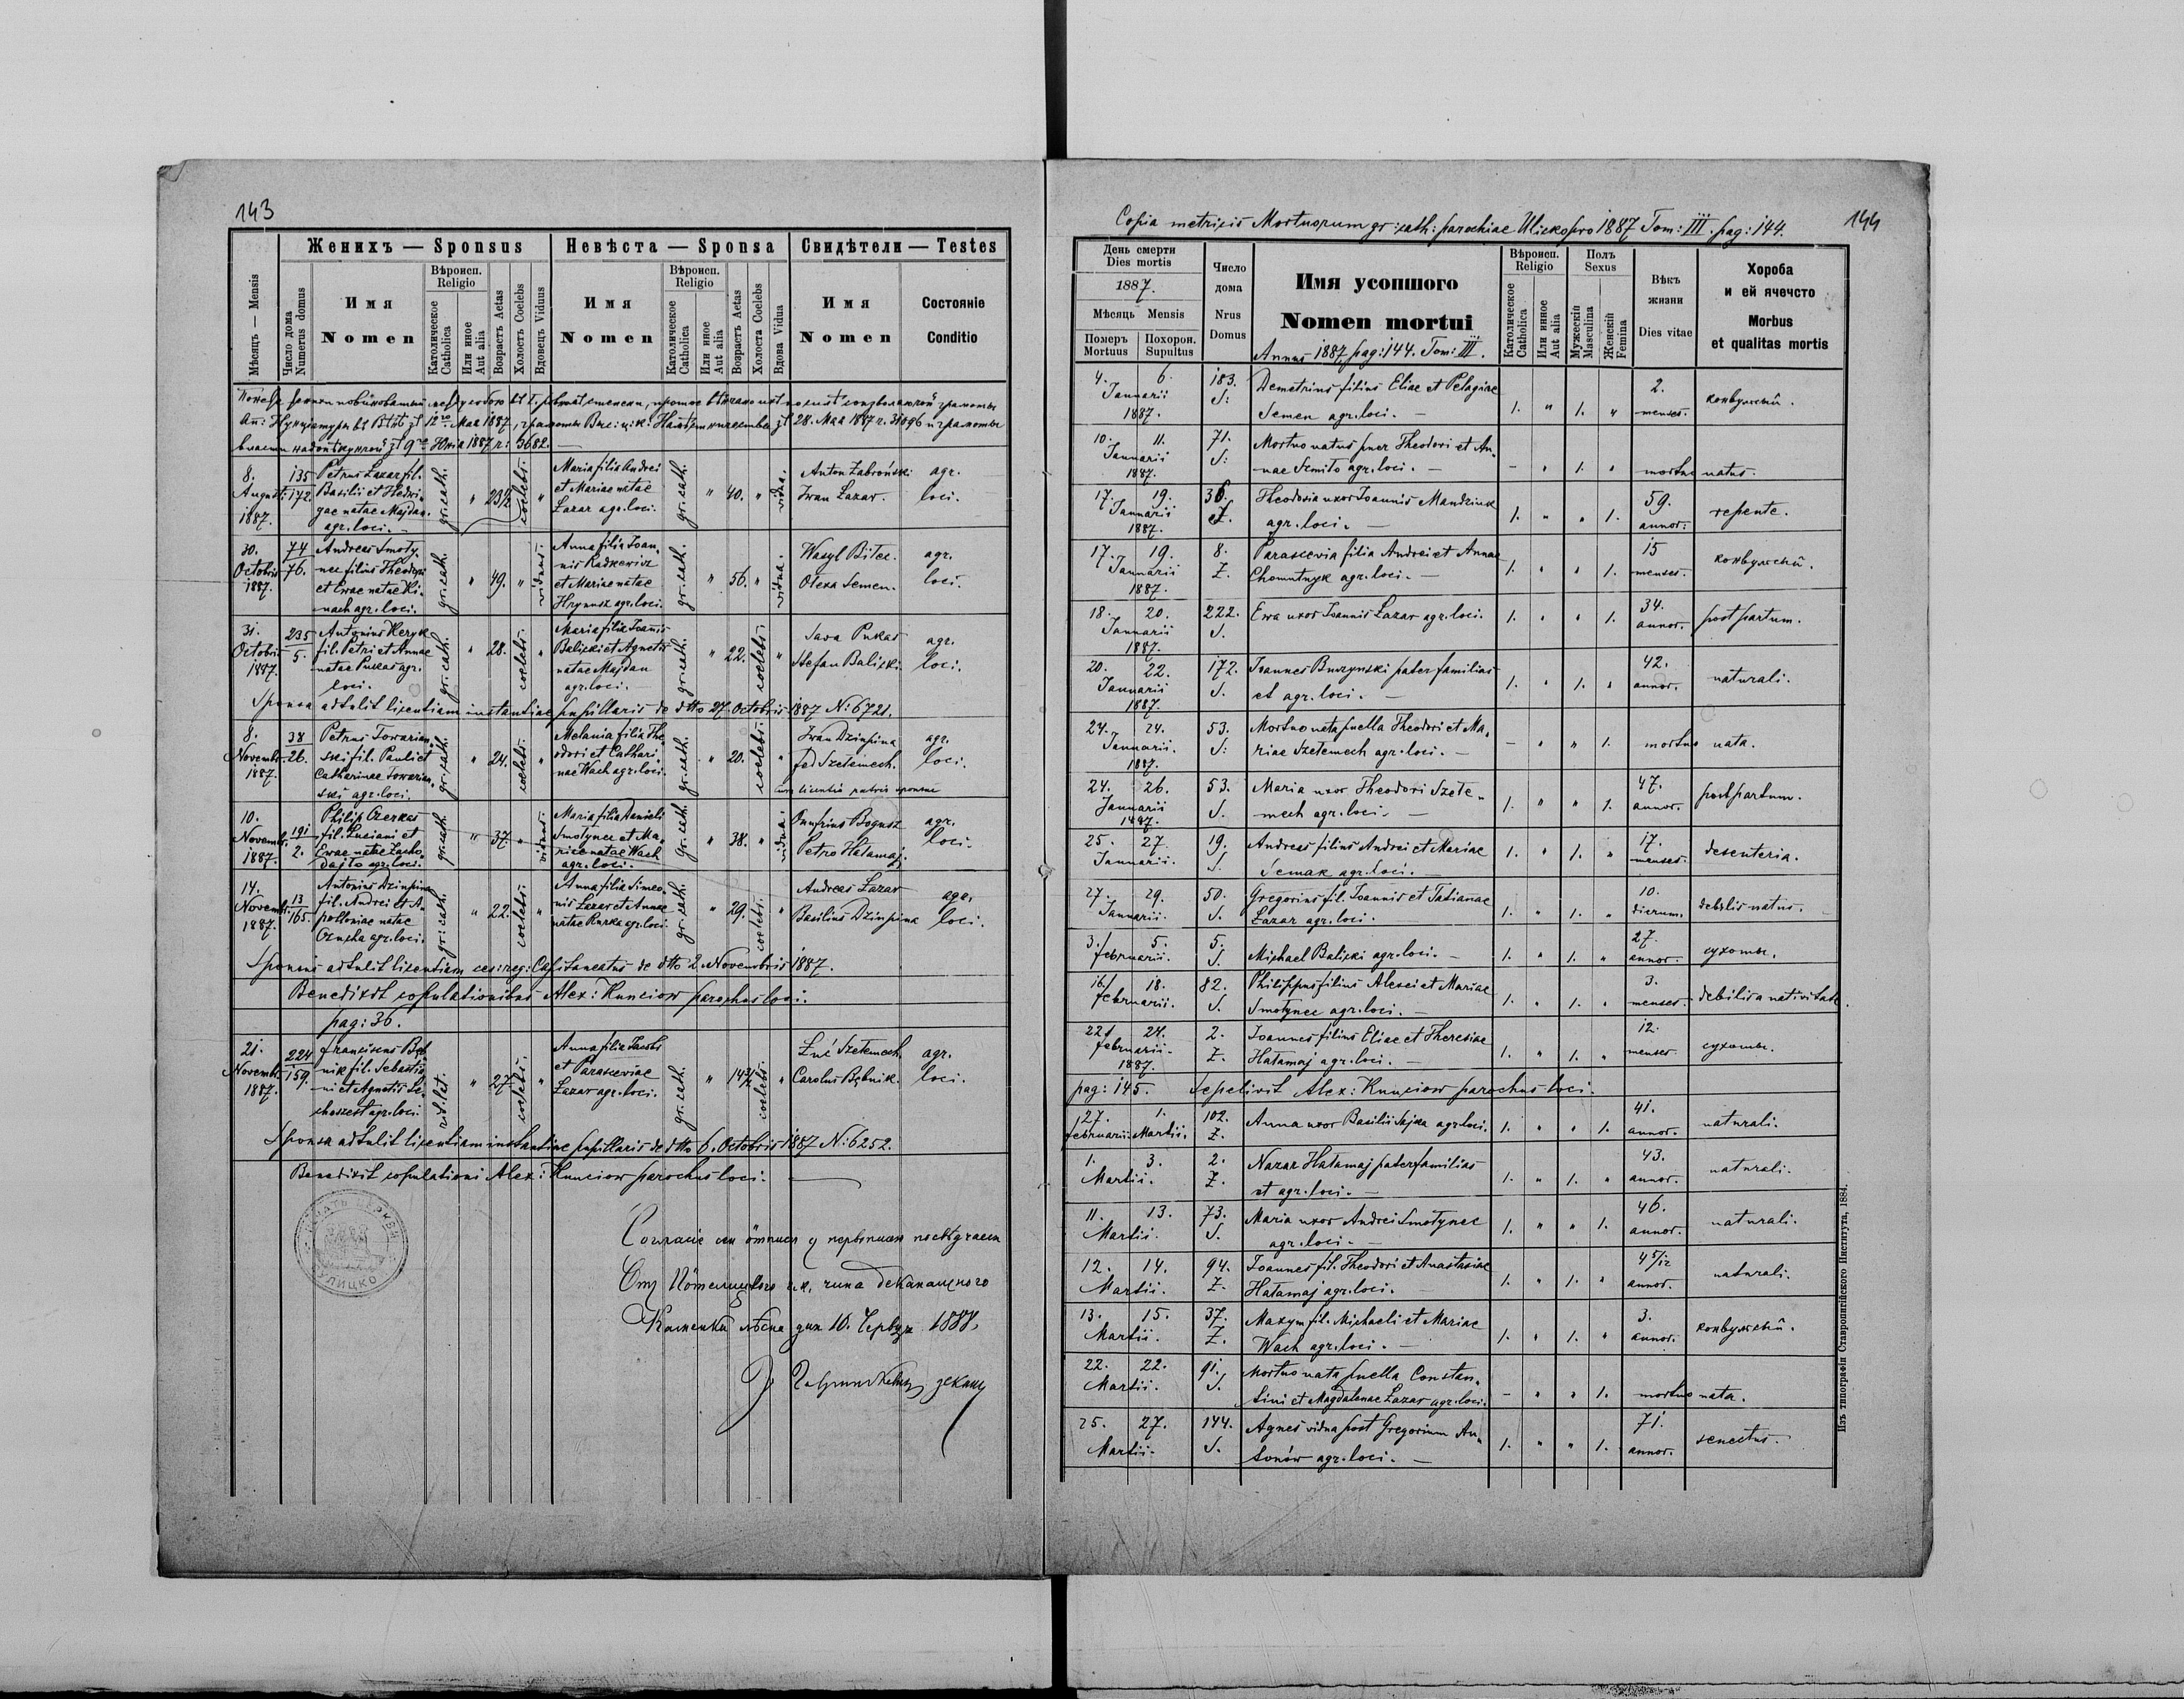 143
Женихъ — Sponsus
Невѣста — Sponsa
Свидѣтели — Testes
Мѣсяцъ — Mensis
Число дома
Numerus domus
Имя
Nomen
Вѣроисп.
Religio
Католическое
Catholica
Или иное
Aut alia
Возрастъ Aetas
Холостъ Coelebs
Вдовецъ Viduus
Имя
Nomen
Вѣроисп.
Religio
Католическое
Catholica
Или иное
Aut alia
Возрастъ Aetas
Холоста Coelebs
Вдова Vidua
Имя
Nomen
Состоянiе
Conditio
8.
August.
1887.
135
172.
Petrus Lazar fil.
Basilii et Hedwi-
gae natae Majdan
agr. loci. —
gr: cath.
" 23½ coelebs. "
Maria filia Andrei
et Mariae natae
Lazar agr. loci.
gr: cath.
" 40. " vidua.
Anton Zabroński
Iwan Lazar.
agr.
loci.
30.
Octobris
1887.
74
76.
Andreas Smoty-
nec filius Theodori
et Ewae natae Ki-
nach agr. loci.
gr: cath.
" 49. " viduus.
Anna filia Ioan-
nis Radkewicz
et Mariae natae
Hrynusz agr. loci.
gr: cath.
" 56. " vidua.
Wasyl Bitec.
Olexa Semen.
agr.
loci.
31.
Octobris
1887.
235
5.
Antonius Heryk
fil. Petri et Annae
natae Pukas agr.
loci.
gr: cath.
" 28. coelebs. "
Maria filia Ioannis
Balicki et Agnetis
natae Majdan
agr. loci. —
gr: cath.
" 22. coelebs. "
Sava Pukas
Stefan Balicki.
agr.
loci.
Sponsa adtulit licentiam instantiae pupillaris de dtto 27. Octobris 1887 N: 6721.
8.
Novembr.
1887.
38
26.
Petrus Towarian-
ski fil. Pauli et
Catharinae Towarian-
ski agr. loci.
gr: cath.
" 24. coelebs. "
Melania filia The-
odori et Cathari-
nae Wach agr. loci.
gr: cath.
" 20. coelebs. "
Iwan Dzinpina
Fed Szetemech.
agr.
loci.
cum licentia patris sponsae
10.
Novembr.
1887.
191
2.
Philip Czerkas
fil. Luciani et
Ewae natae
agr. loci.
gr: cath.
" 37. " viduus.
Maria filia Danieli
Smotynec et Ma-
riae natae Wach
agr. loci.
gr: cath.
" 38. " vidua.
Onufrius Bogusz
Petro Hatamaj.
agr.
loci.
14.
Novembr.
1887.
13
165.
Antonius Dzinpina
fil. Andrei et A-
polloniae natae
agr. loci.
gr: cath.
" 22. coelebs. "
Anna filia Simeo-
nis Lazar et Annae
natae agr. loci.
gr: cath.
" 29. coelebs. "
Andreas Lazar
Basilius Dzinpina
agr.
loci.
Sponsus adtulit licentiam ces: reg: Capitaneatus de dtto 2. Novembris 1887.
Benedixit copulationibus Alex: Kunciow parochus loci.
pag: 36.
21.
Novembr.
1887.
224
159.
Franciscus Bęb-
nik fil. Sebastia-
ni et Agnetis
agr. loci.
rit. lat.
" 27. coelebs. "
Anna filia Iacobi
et Parasceviae
Lazar agr. loci.
gr: cath.
" coelebs. "
Szetemech
Carolus Bębnik.
agr.
loci.
Sponsa adtulit licentiam instantiae pupillaris de dtto 6. Octobris 1887 N: 6252.
Benedixit copulationi Alex: Kunciow parochus loci. —
дня 10. Червця 1888.
144
Copia metricis Mortuorum gr: cath: parochiae Ulicko pro 1887 Tom: III. pag: 144.
День смерти
Dies mortis
1887.
Мѣсяць Mensis
Померъ
Mortuus
Похорон.
Sepultus
Число
дома
Nrus
Domus
Имя усопшого
Nomen mortui
Annus 1887 pag: 144. Tom: III.
Вѣроисп.
Religio
Католическое
Catholica
Или инное
Aut alia
Полъ
Sexus
Мужескiй
Masculina
Женскiй
Femina
Вѣкъ
жизни
Dies vitae
Хороба
и ей ячечсто
Morbus
et qualitas mortis
4. 6.
Ianuarii
1887.
183.
S.
Demetrius filius Eliae et Pelagiae
Semen agr. loci. —
1. " 1. "
2.
menses.
конвульсiй.
10. 11.
Ianuarii
1887.
71.
S.
Mortuo natus puer Theodori et An-
nae Szmito agr. loci. —
- " 1. " mortuo natus.
17. 19.
Ianuarii
1887.
36.
Z.
Theodosia uxor Ioannis Mandziuk
agr. loci. —
1. " " 1.
59.
annor.
repente.
17. 19.
Ianuarii
1887.
8.
Z.
Parascevia filia Andrei et Annae
Chomutnyk agr. loci. —
1. " " 1.
15
menses.
конвульсiй.
18. 20.
Ianuarii
1887.
222.
S.
Ewa uxor Ioannis Lazar agr. loci.
1. " " 1.
34.
annor.
post partum.
20. 22.
Ianuarii
1887.
172.
S.
Ioannes Burzynski pater familias
et agr. loci. —
1. " 1. "
42.
annor.
naturali.
24. 24.
Ianuarii.
1887.
53.
S.
Mortuo nata puella Theodori et Ma-
riae Szetemech agr. loci. —
- " " 1. mortuo nata.
24. 26.
Ianuarii
1887.
53.
S.
Maria uxor Theodori Szete-
mech agr. loci. —
1. " " 1.
47.
annor.
post partum.
25. 27
Ianuarii.
19.
S.
Andreas filius Andrei et Mariae
Semak agr. loci. —
1. " 1. "
17.
menses.
desenteria.
27. 29.
Ianuarii.
50.
S.
Gregorius fil. Ioannis et Tatianae
Lazar agr. loci.
1. " 1. "
10.
dierum.
debilis natus.
3. 5.
Februarii.
5.
S.
Michael Balicki agr. loci. —
1. " 1. "
27.
annor.
сухоты.
16. 18.
Februarii.
82.
S.
Philippus filius Alexei et Mariae
Smotynec agr. loci. —
1. " 1. "
3.
menses.
debilis a nativitate.
22. 24.
Februarii.
1887.
2.
Z.
Ioannes filius Eliae et Theresiae
Hatamaj agr. loci. —
1. " 1. "
12.
menses.
сухоты.
pag: 145. Sepelivit Alex: Kunciow parochus loci.
27. 1.
Februarii. Martii.
102.
Z.
Anna uxor Basilii agr. loci.
1. " " 1.
41.
annor.
naturali.
1. 3.
Martii.
2.
Z.
Nazar Hatamaj pater familias
et agr. loci. —
1. " 1. "
43.
annor.
naturali.
11. 13.
Martii.
73.
S.
Maria uxor Andrei Smotynec
agr. loci. —
1. " " 1.
46.
annor.
naturali.
12. 14.
Martii.
94.
Z.
Ioannes fil. Theodori et Anastasiae
Hatamaj agr. loci.
1. " 1. "
4 5/12
annor.
naturali.
13. 15.
Martii.
37.
Z.
Maxym fil. Michaeli et Mariae
Wach agr. loci. —
1. " 1. "
3.
annor.
конвульсiй.
22. 22.
Martii.
91.
S.
Mortuo nata puella Constan-
tini et Magdalenae Lazar agr. loci.
- " " 1. mortuo nata.
25. 27.
Martii.
144.
S.
Agnes vidua post Gregorium An-
tonów agr. loci. —
1. " " 1.
71.
annor.
senectus.
Изъ типографiи Ставропигiйского Института, 1884.